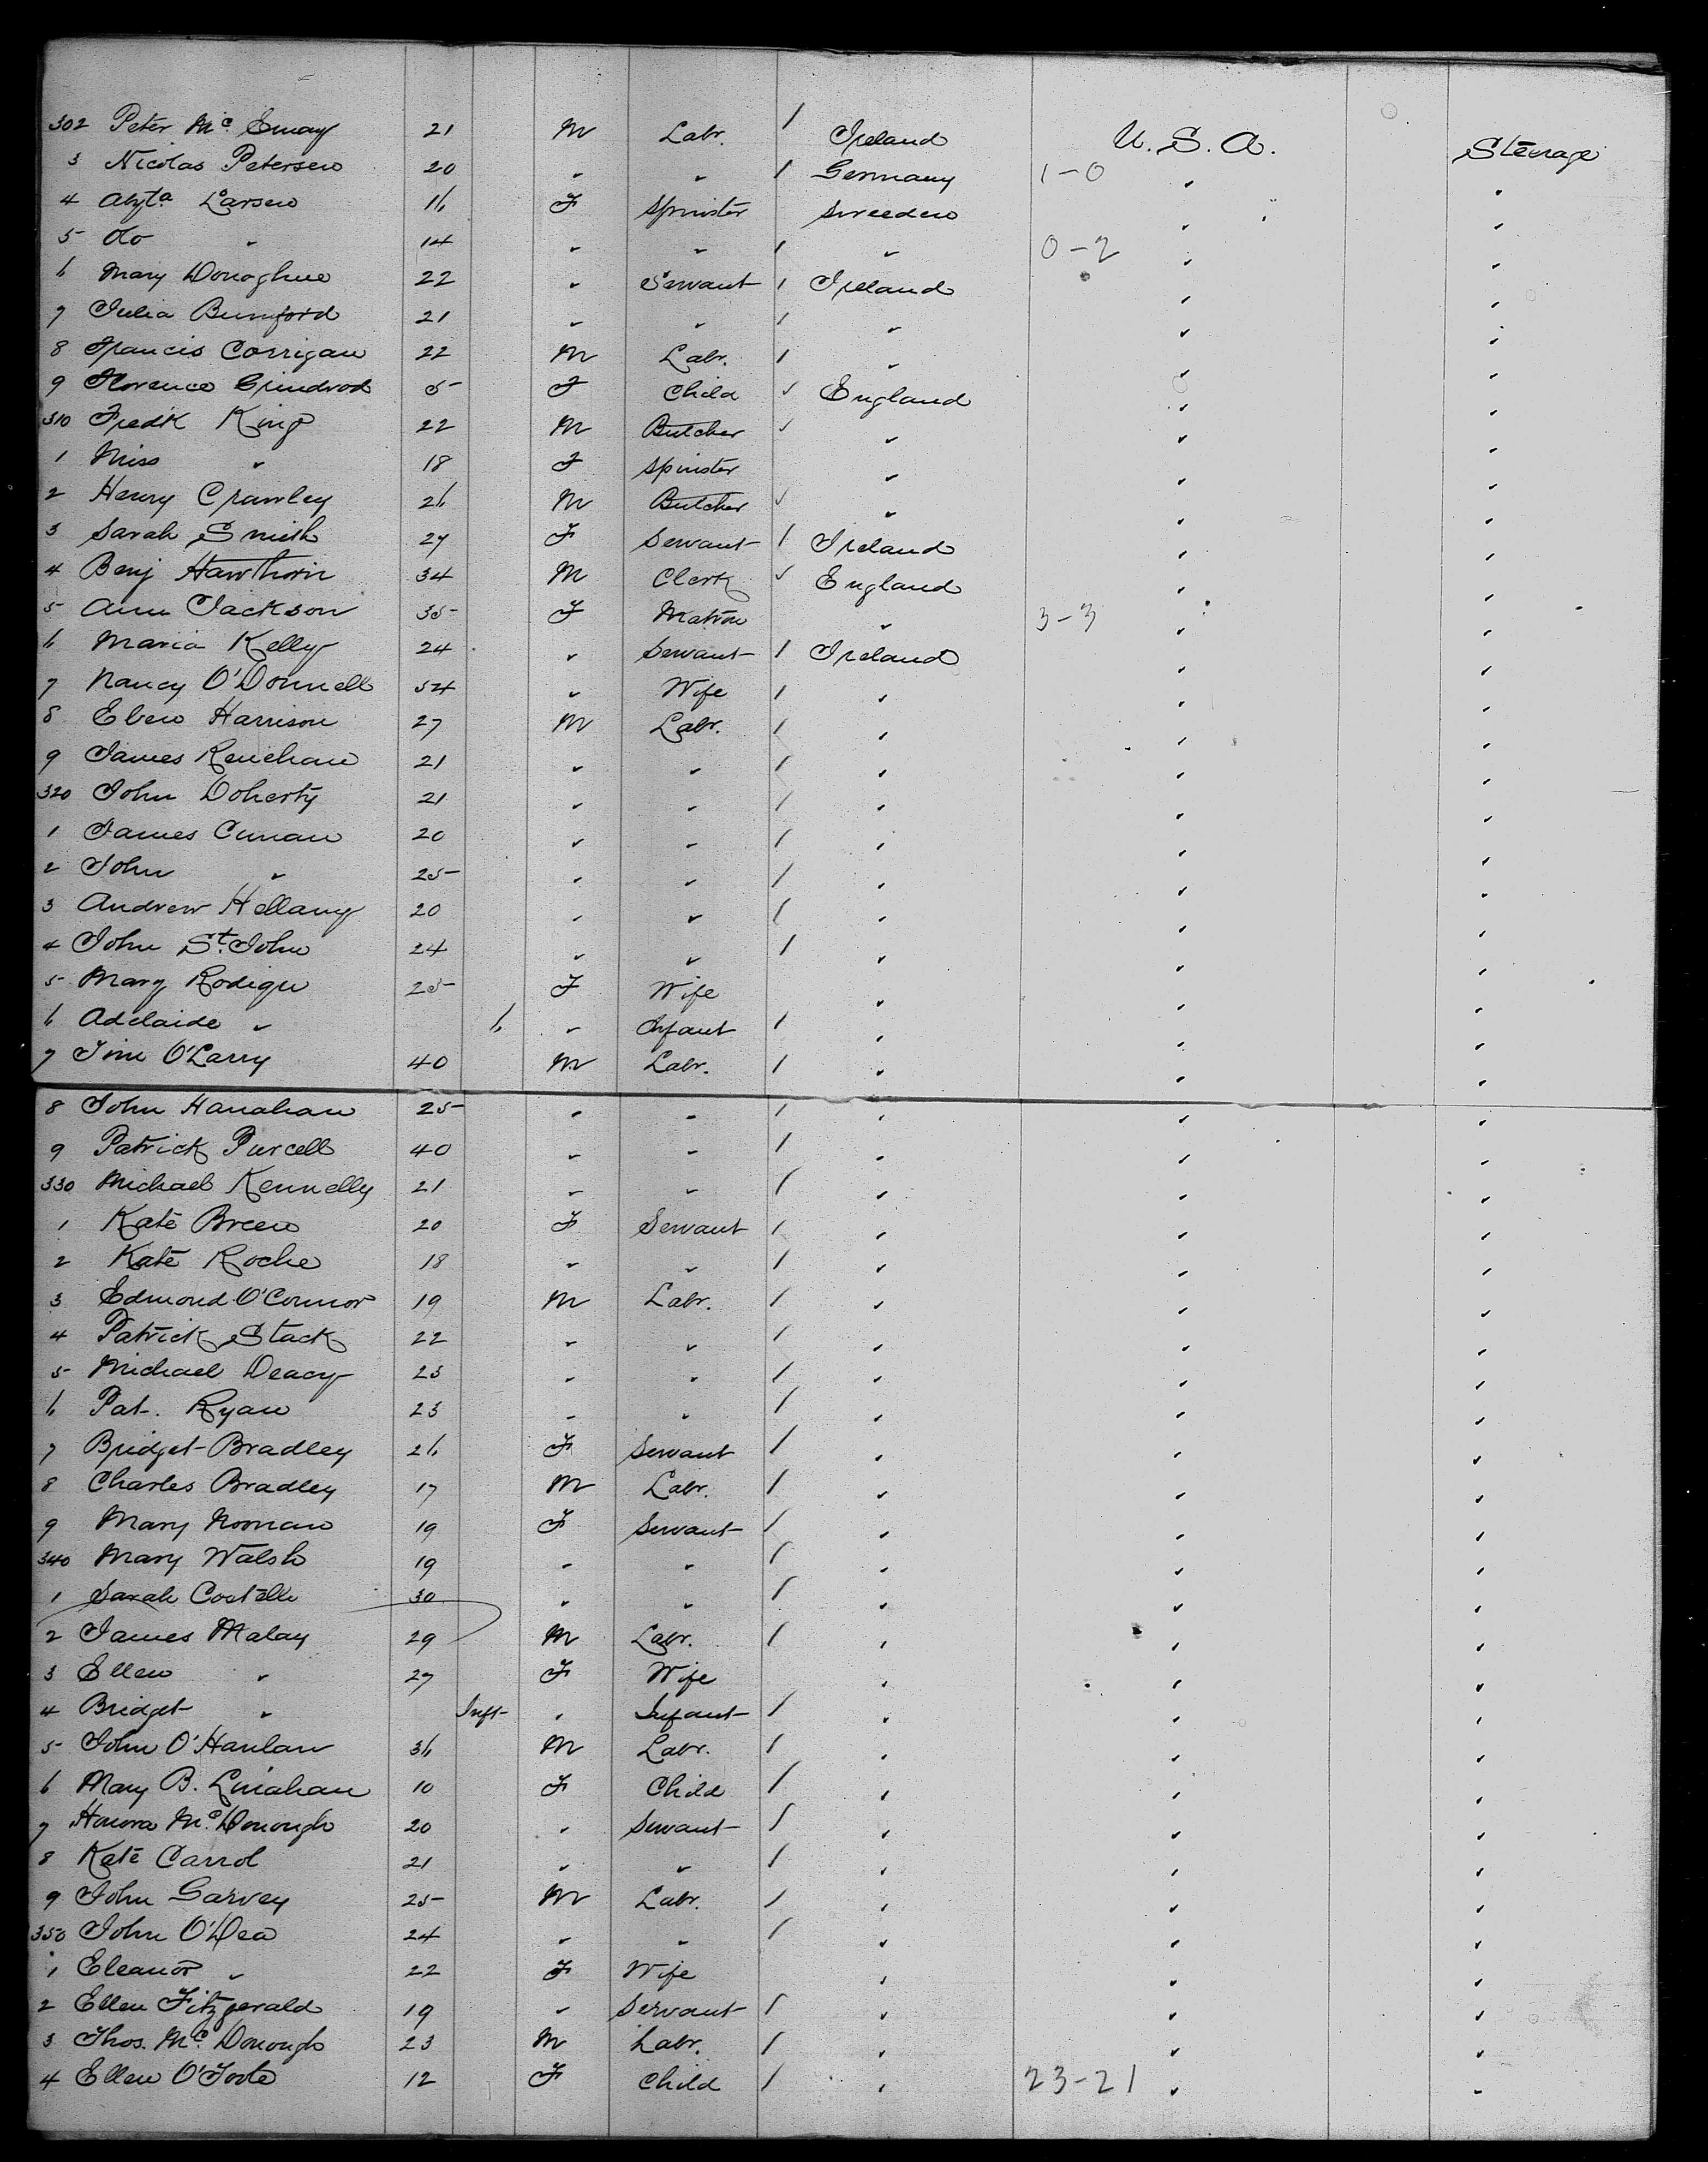 302 Peter Mc Emay 21 M Labr. / Ireland U.S.A. Steerage
3 Nicolas Petersen 20 " " / Germany 1-0 " "
4 Larsen 16 F Spinster Sweeden " "
5 Do " 14 " " / " 0-2 " "
6 Mary Donoghue 22 " Servant / Ireland " "
7 Julia Bumford 21 " " / " " "
8 Francis Corrigan 22 M Labr. / " " "
9 Florence Grindrod 5 F Child ✓ England " "
310 Fredk King 22 M Butcher ✓ " " "
1 Miss " 18 F Spinster " " "
2 Henry Crawley 26 M Butcher ✓ " " "
3 Sarah Smith 27 F Servant / Ireland " "
4 Benj Hawthorn 34 M Clerk ✓ England " "
5 Ann Jackson 35 F Matron " 3-3 " "
6 Maria Kelly 24 " Servant / Ireland " "
7 Nancy O'Donnell 54 " Wife / " " "
8 Eben Harrison 27 M Labr. / " " "
9 James Renehan 21 " " / " " "
320 John Doherty 21 " " / " " "
1 James Cunan 20 " " / " " "
2 John " 25 " " / " " "
3 Andrew Hellany 20 " " / " " "
4 John St. John 24 " " / " " "
5 Mary Rodigu 25 F Wife " " "
6 Adelaide " 6 " Infant / " " "
7 Jim O'Larry 40 M Labr. / " " "
8 John Hanahan 25 " " / " " "
9 Patrick Purcell 40 " " / " " "
330 Michael Kennelly 21 " " / " " "
1 Kate Breen 20 F Servant / " " "
2 Kate Roche 18 " " / " " "
3 Edmond O'Connor 19 M Labr. / " " "
4 Patrick Stack 22 " " / " " "
5 Michael Deacy 23 " " / " " "
6 Pat. Ryan 23 " " / " " "
7 Bridget Bradley 26 F Servant / " " "
8 Charles Bradley 17 M Labr. / " " "
9 Mary Noonan 19 F Servant / " " "
340 Mary Walsh 19 " " / " " "
1 Sarah Costello 30 " " / " " "
2 James Malay 29 M Labr. / " " "
3 Ellen " 27 F Wife " " "
4 Bridget " Inft " Infant / " " "
5 John O'Hanlan 36 M Labr. / " " "
6 Mary B. Linahan 10 F Child / " " "
7 Honora Mc Donough 20 " Servant / " " "
8 Kate Carrol 21 " " / " " "
9 John Garvey 25 M Labr. / " " "
350 John O'Dea 24 " " / " " "
1 Eleanor " 22 F Wife " " "
2 Ellen Fitzgerald 19 " Servant / " " "
3 Thos. Mc Donough 23 M Labr. / " " "
4 Ellen O'Toole 12 F Child / " 23-21 " "